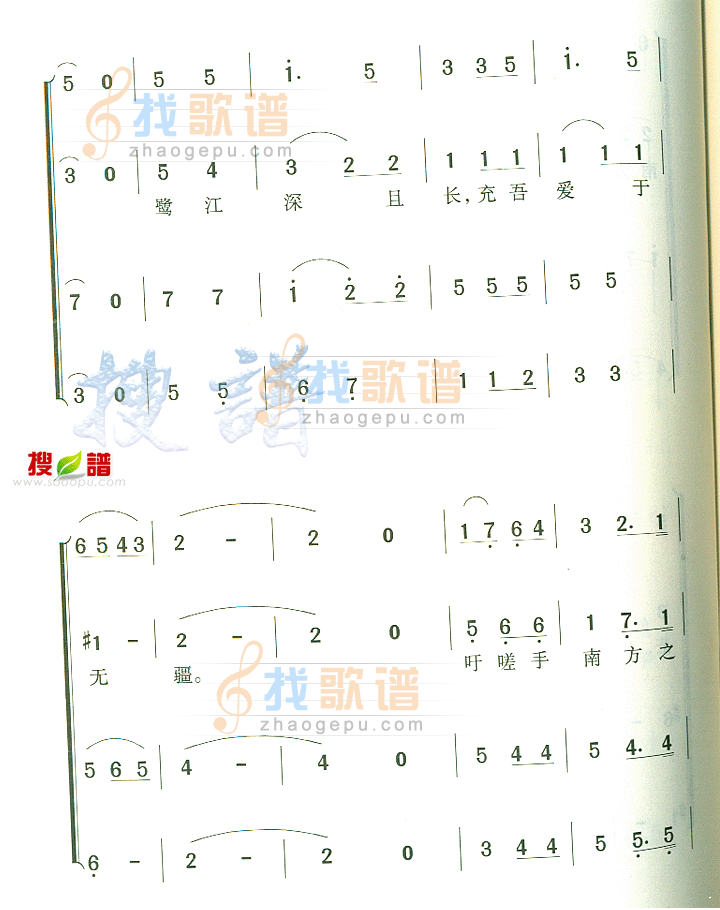 5 0 | 5 5 | i. 5 | 3 3 5 | i. 5 |
找歌谱
zhaogepu.com
3 0 | 5 4 | 3 2 2 | 1 1 1 | 1 1 1 |
鹭 江 深 且 长, 充 吾 爱 于
7 0 | 7 7 | i 2 2 | 5 5 5 | 5 5 |
3 0 | 5 5 | 6 7 | 1 1 2 | 3 3 |
搜谱
找歌谱
zhaogepu.com
搜谱
www.sooopu.com
6 5 4 3 | 2 - | 2 0 | 1 7 6 4 | 3 2. 1 |
#1 - | 2 - | 2 0 | 5 6 6 | 1 7. 1 |
无 疆。 吁 嗟 乎 南 方 之
找歌谱
zhaogepu.com
5 6 5 | 4 - | 4 0 | 5 4 4 | 5 4. 4 |
6 - | 2 - | 2 0 | 3 4 4 | 5 5. 5 |